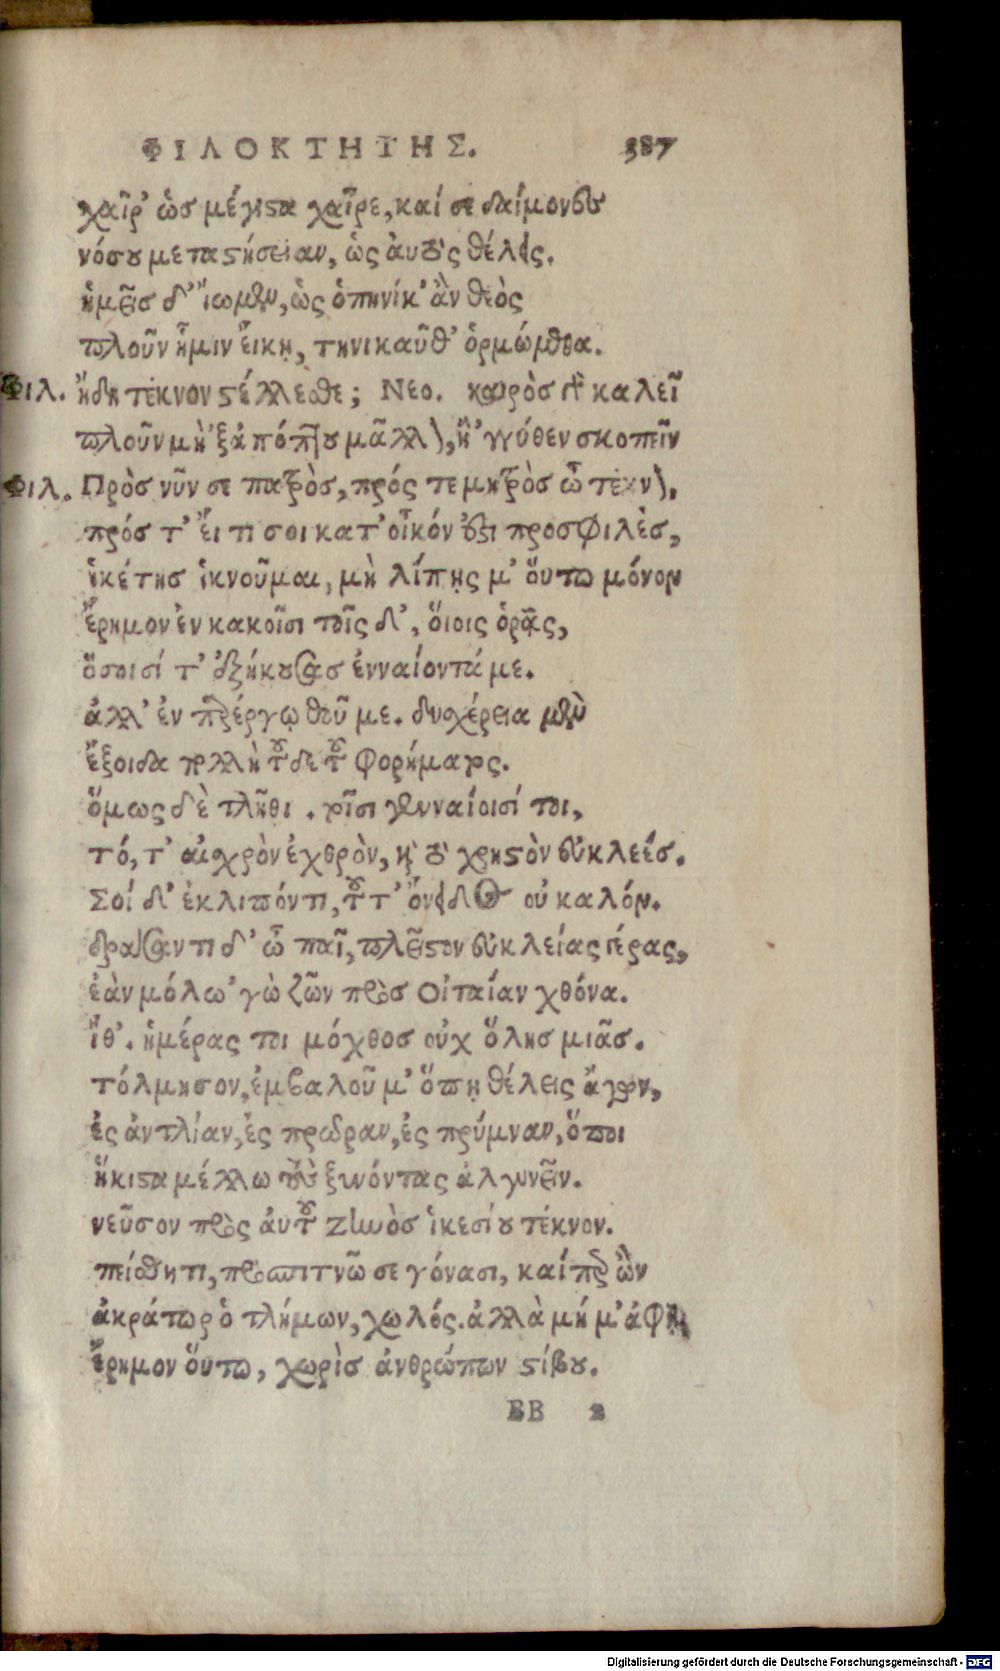 ΦΙΛΟΚΤΗΤΗΣ. 387
χαῖρ' ὡσ μέγιστα χαῖρε, καί σε δαίμονες
νόσου μεταστήσειαν, ὡς ἀυτὸς θέλεις.
ἡμεῖσ δ' ἴωμεν, ὡς ὁπηνίκ' ἂν θεὸς
πλοῦν ἥμιν ἔικῃ, τηνικαῦθ' ὁρμώμεθα.
Φιλ. ἤδη τέκνον στέλλεσθε; Νεο. καιρὸσ γὰρ καλεῖ
πλοῦν μὴ 'ξ ἀπόπτου μᾶλλον, ἢ 'γγύθεν σκοπεῖν
Φιλ. Πρὸσ νῦν σε πατρὸσ, πρός τε μητρὸσ ὦ τέκνον,
πρόσ τ' ἔι τι σοι κατ' οἶκόν ἐστι προσφιλὲσ,
ἱκέτησ ἱκνοῦμαι, μὴ λίπῃς μ' ὅυτω μόνον
ἔρημον ἐν κακοῖσι τοῖς δ', ὅιοις ὁρᾷς,
ὅσοισί τ' ἐξήκουσασ ἐνναίοντά με.
ἀλλ' ἐν παρέργῳ θοῦ με. δυσχέρεια μὲν
ἔξοιδα πολλὴ τοῦδε τοῦ φορήματος.
ὅμως δὲ τλῆθι. τοῖσι γενναίοισί τοι,
τό, τ' αἰσχρὸν ἐχθρὸν, καὶ τὸ χρηστὸν εὐκλεέσ.
Σοί δ' ἐκλιπόντι, τοῦτ' ὄνειδος οὐ καλόν.
δράσαντι δ' ὦ παῖ, πλεῖστον εὐκλείας γέρας,
ἐὰν μόλω 'γὼ ζῶν πρὸσ Οἰταίαν χθόνα.
ἴθ'. ἡμέρας τοι μόχθοσ οὐχ ὅλησ μιᾶσ.
τόλμησον, ἐμβαλοῦ μ' ὅπῃ θέλεις ἄγων,
ἐς ἀντλίαν, ἐς πρῶραν, ἐς πρύμναν, ὅποι
ἥκιστα μέλλω τοὺς ξυνόντας ἀλγυνεῖν.
νεῦσον πρὸς ἀυτοῦ Ζηνὸσ ἱκεσίου τέκνον.
πείσθητι, προσπιτνῶ σε γόνασι, καίπερ ὢν
ἀκράτωρ ὁ τλήμων, χωλός. ἀλλὰ μή μ' ἀφῇς
ἔρημον ὅυτω, χωρὶσ ἀνθρώπων στίβου.
BB 2
Digitalisierung gefördert durch die Deutsche Forschungsgemeinschaft - DFG